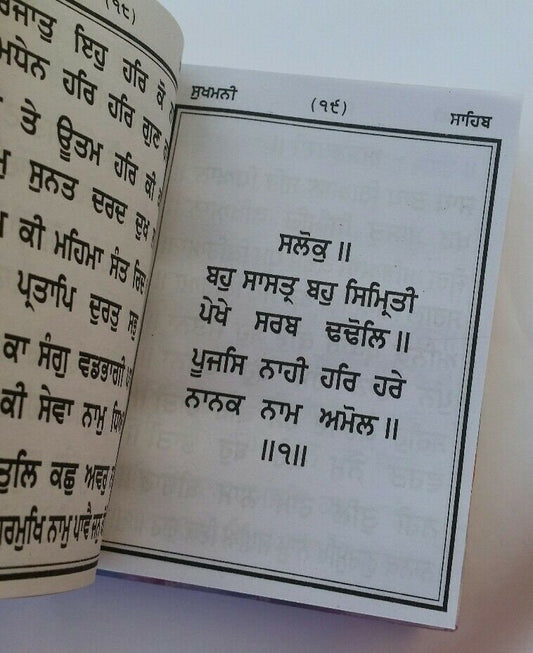 (੧੮)
ਇਹੁ ਹਰਿ ਕੋ
ਹਰਿ ਹਰਿ ਗੁਣ
ਤੇ ਊਤਮ ਹਰਿ ਕੀ
ਸੁਨਤ ਦਰਦ ਦੁਖ
ਕੀ ਮਹਿਮਾ ਸੰਤ ਰਿਦ
ਪ੍ਰਤਾਪਿ ਦੁਰਤੁ ਸਭੁ
ਕਾ ਸੰਗੁ ਵਡਭਾਗੀ
ਕੀ ਸੇਵਾ ਨਾਮੁ
ਤੁਲਿ ਕਛੁ ਅਵਰੁ
ਨਾਮੁ ਪਾਵੈ ਜਨੁ
ਸੁਖਮਨੀ (੧੯) ਸਾਹਿਬ
ਸਲੋਕੁ ॥
ਬਹੁ ਸਾਸਤ੍ਰ ਬਹੁ ਸਿਮ੍ਰਿਤੀ
ਪੇਖੇ ਸਰਬ ਢਢੋਲਿ ॥
ਪੂਜਸਿ ਨਾਹੀ ਹਰਿ ਹਰੇ
ਨਾਨਕ ਨਾਮ ਅਮੋਲ ॥
॥੧॥